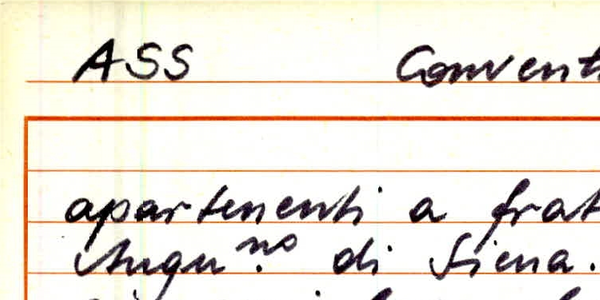 ASS Convent
apartenenti a frat
Augu.no di Siena.